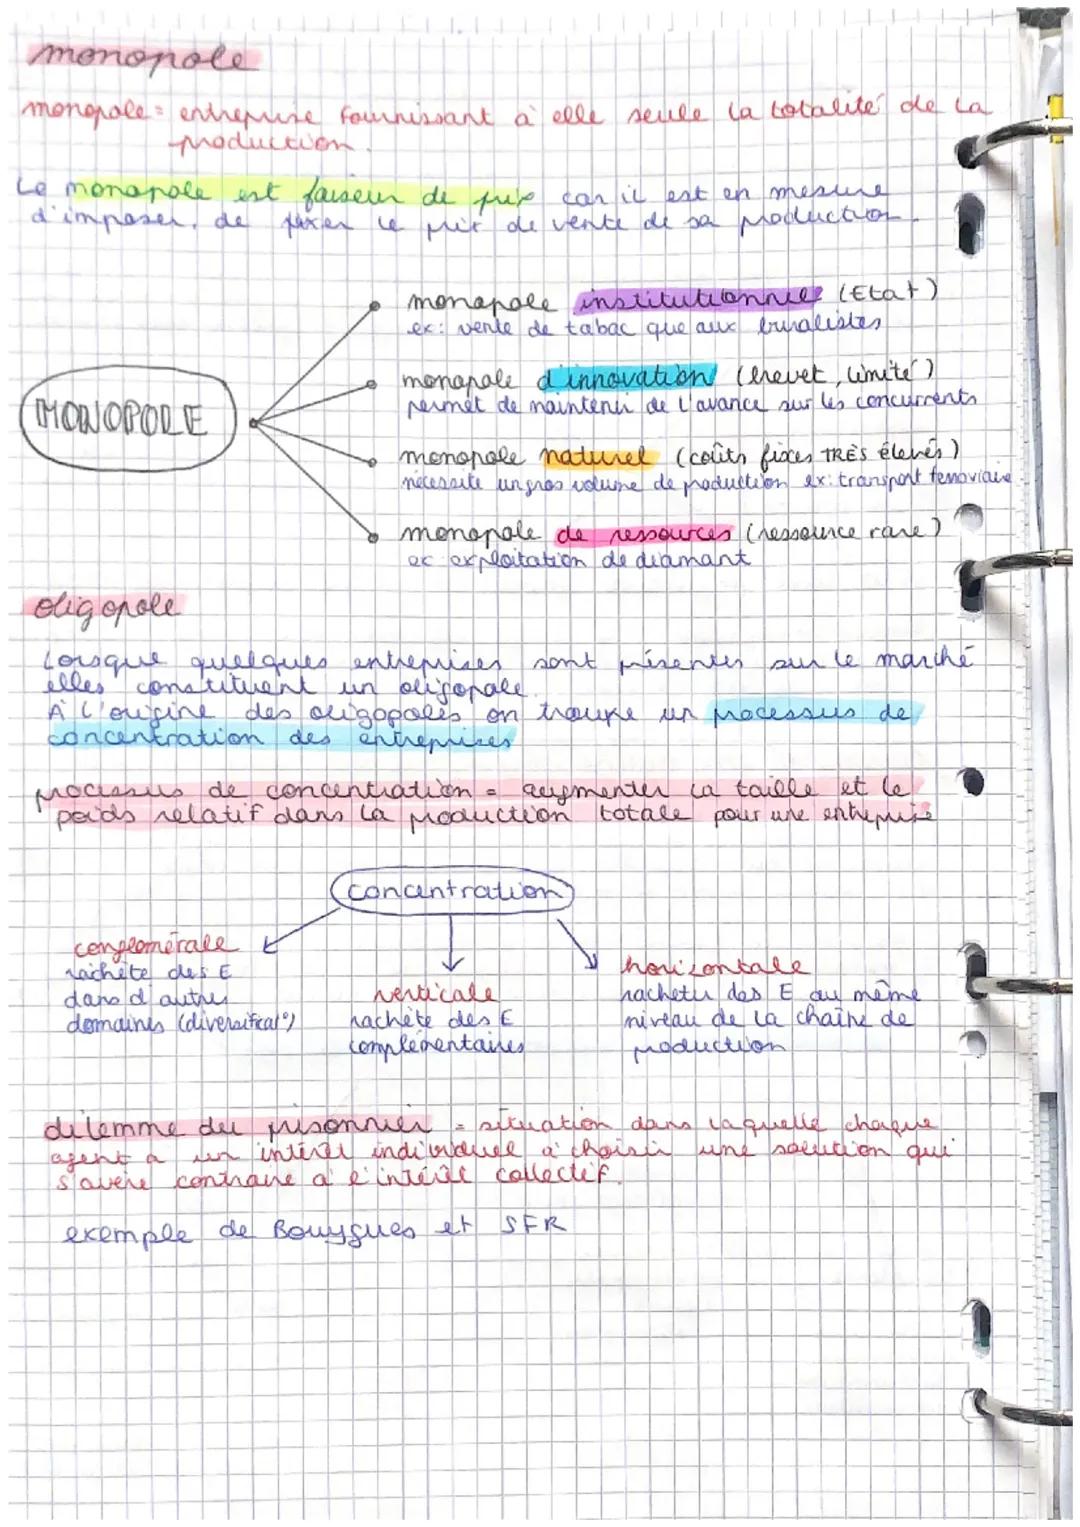 monopole
monopole = entreprise fournissant à elle seule la totalité de la
production.
Le monopole est faiseur de prix car il est en mesure
d'imposer, de fixer le prix de vente de sa production.
MONOPOLE
monopole institutionnel (Etat)
ex: vente de tabac que aux buralistes
monopole d'innovation (brevet, limité)
permet de maintenir de l'avance sur les concurrents
monopole naturel (coûts fixes TRÈS élevés)
nécessite un gros volume de production ex: transport ferroviaire
monopole de ressources (ressource rare)
ex exploitation de diamant
oligopole
Lorsque quelques entreprises sont présentes sur le marché
elles constituent un oligopole.
À l'origine des oligopoles on trouve un processus de
concentration des entreprises
processus de concentration = augmenter la taille et le
poids relatif dans la production totale pour une entreprise
concentration
conglomérale
rachète des E
dans d'autres
domaines (diversificat°)
verticale
rachète des E
complémentaires
horizontale
racheter des E au même
niveau de la chaîne de
production
dilemme du prisonnier = situation dans laquelle chaque
agent a un intérêt individuel à choisir une solution qui
s'avère contraire à l'intérêt collectif.
exemple de Bouygues et SFR